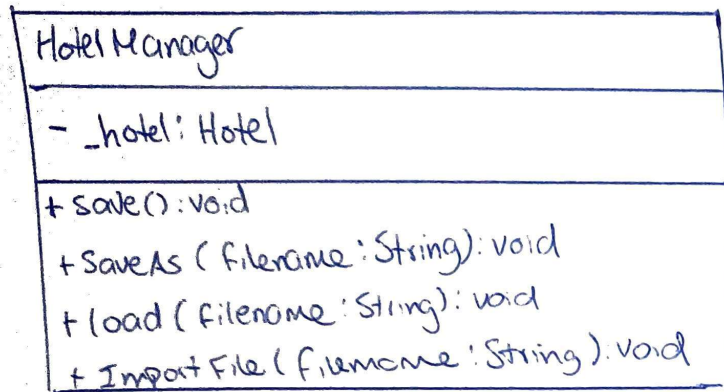 HotelManager
- _hotel: Hotel
+ save(): void
+ SaveAs (filename: String): void
+ load (filename: String): void
+ ImportFile (filename: String): void